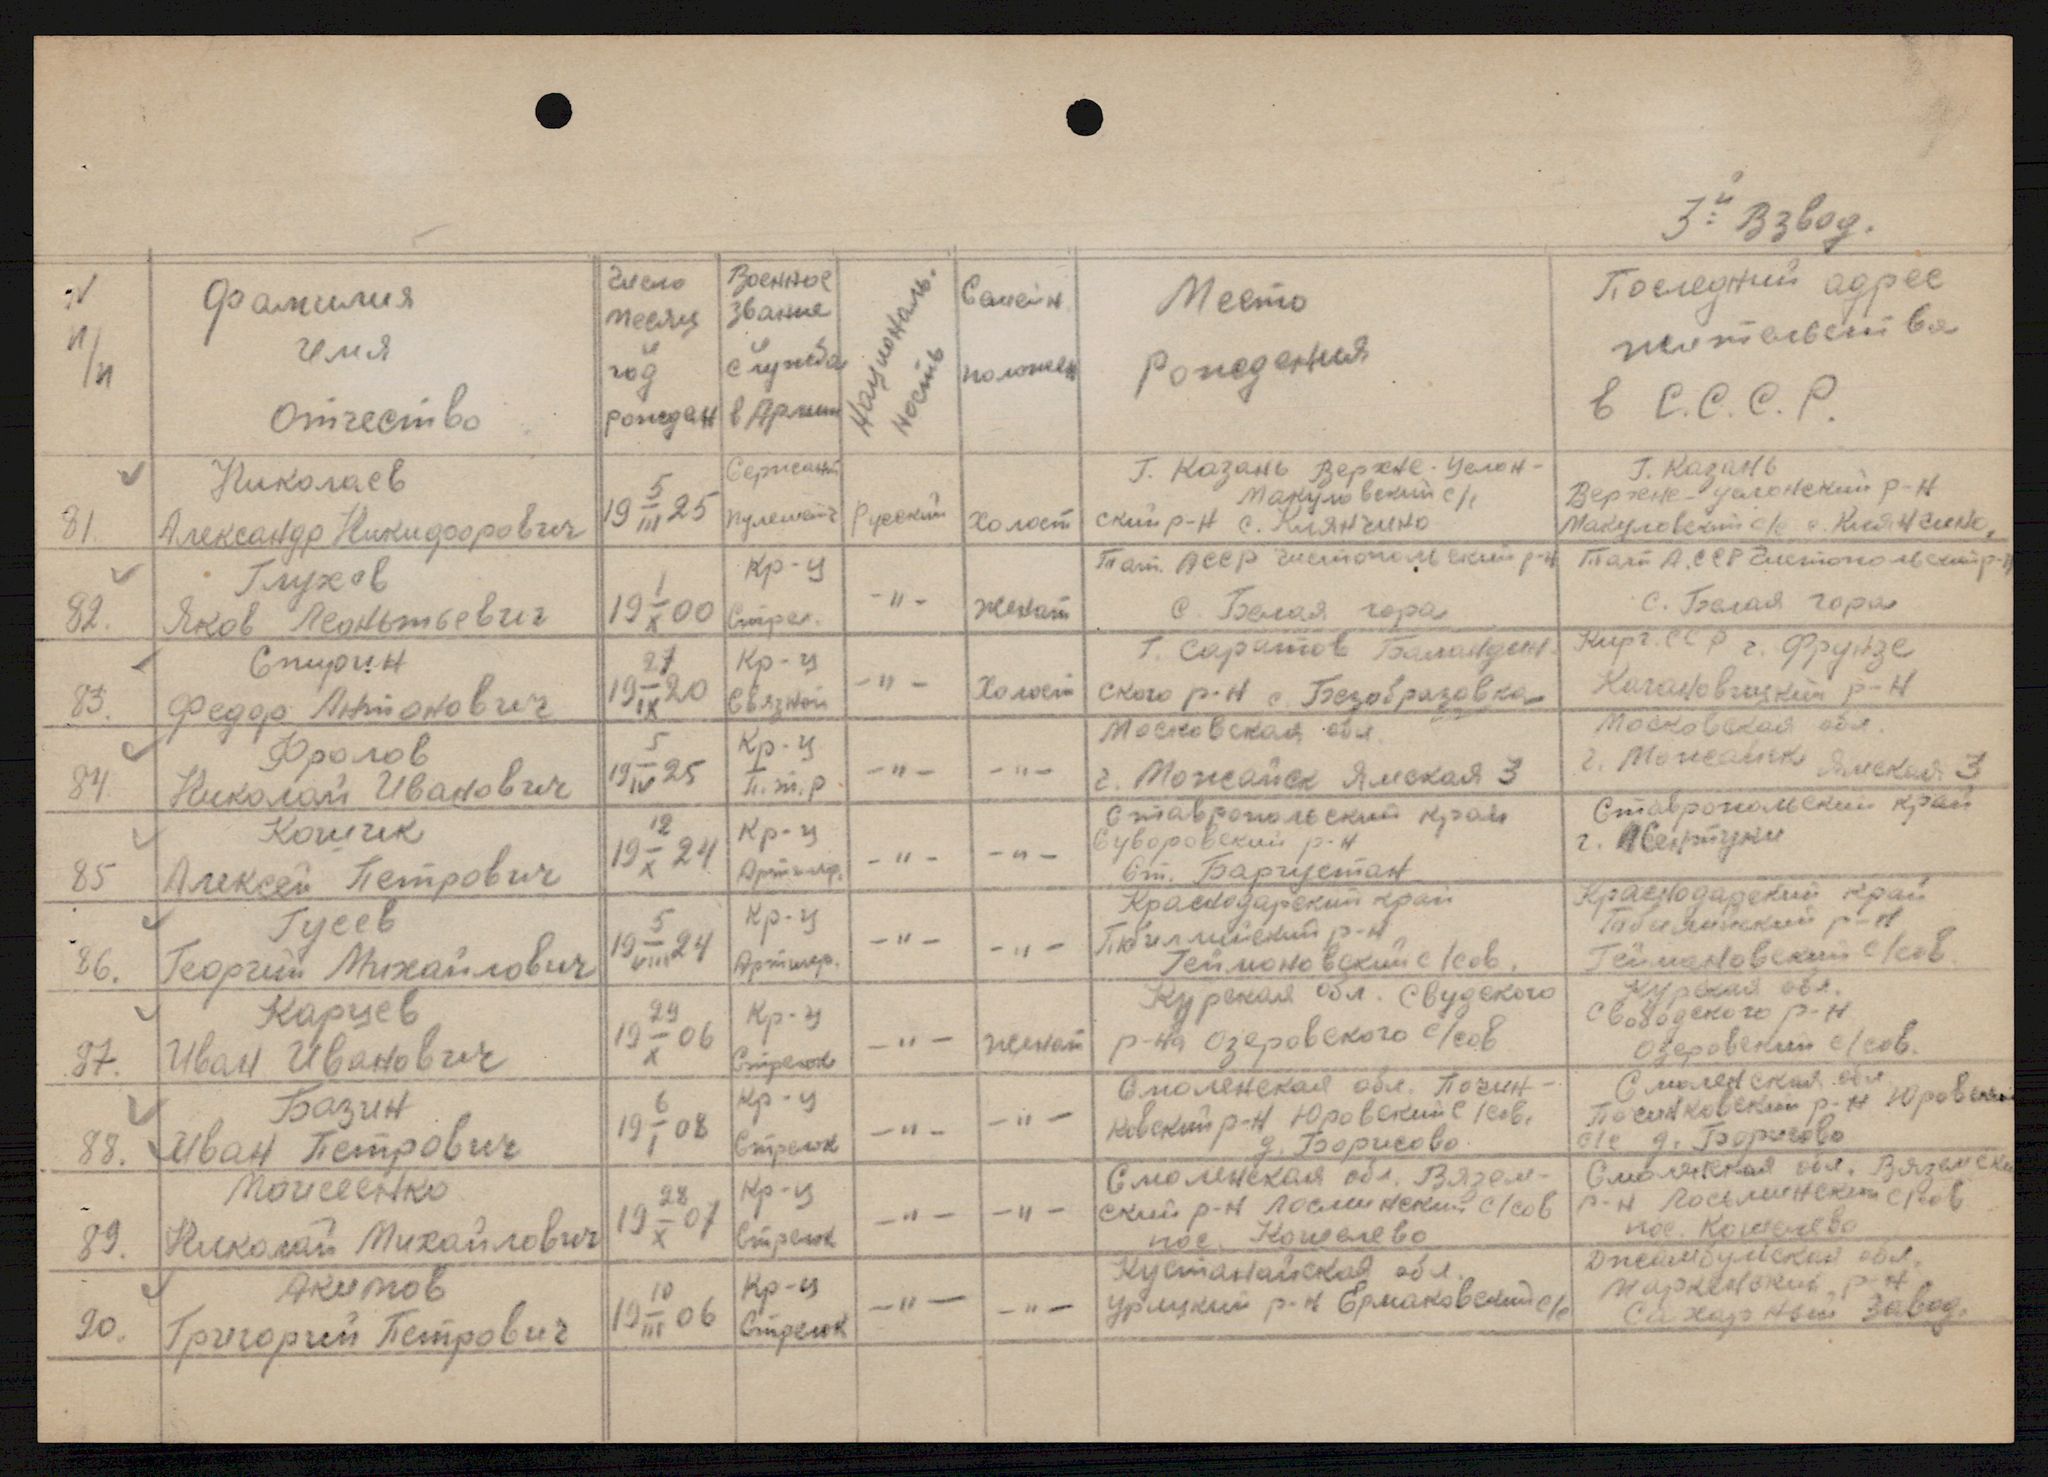 3й Взвод.
N п/п
Фамилия
Имя
Отчество
Число
месяц
и
год
рожден
Военное
звание
и
служба
в Армии
Националь.
ность
Семейн.
положен
Место
Рождения
Последний адрес
жительства
в С.С.С.Р.
81.
Николаев
Александр Никифорович
19 5/III 25
Сержант
пулеметч
Русский
Холост
Г. Казань Верхне-Услон-
Макуловский с/с
ский р-н с. Клянчино
Г. Казань
Верхне-услонский р-н
Макуловский с/с с. Клянчино.
82.
Глухов
Яков Леонтьевич
19 1/X 00
Кр-ц
Стрел.
-"-
женат
Тат. АССР Чистопольский р-н
с. Белая гора
Тат А.ССР Чистопольский р-н
с. Белая гора
83.
Спирин
Федор Антонович
19 27/IX 20
Кр-ц
Связной
-"-
Холост
Г. Саратов Баланден-
ского р-н с. Безобразовка
Кирг. ССР г. Фрунзе
Кагановичский р-н
84.
Фролов
Николай Иванович
19 5/IV 25
Кр-ц
П.т.р
-"-
-"-
Московская обл.
г. Можайск Ямская 3
Московская обл.
г. Можайск Ямская 3
85
Кошик
Алексей Петрович
19 12/X 24
Кр-ц
Артилер.
-"-
-"-
Ставропольский край
Суворовский р-н
Ст. Баргустан
Ставропольский край
г. Исентуки
86.
Гусев
Георгий Михайлович
19 5/VIII 24
Кр-ц
Артилер.
-"-
-"-
Краснодарский край
Тбиллийский р-н
Геймоновский с/сов.
Краснодарский край
Тбилийский р-н
Геймановский с/сов.
87.
Карцев
Иван Иванович
19 29/X 06
Кр-ц
Стрелок
-"-
женат
Курская обл. Свудского
р-на Озеровского с/сов
Курская обл.
Свободского р-н
Озеровский с/сов.
88.
Базин
Иван Петрович
19 6/I 08
Кр-ц
Стрелок
-"-
-"-
Смоленская обл. Почин-
ковский р-н Юровский с/сов.
д. Борисово
Смоленская обл
Починковский р-н Юровский
с/с д. Борисово
89.
Моисеенко
Николай Михайлович
19 28/X 07
Кр-ц
Стрелок
-"-
-"-
Смоленская обл. Вязем-
ский р-н Лосминский с/сов
пос. Кошелево
Смоленская обл. Вяземски
р-н Лосьминский с/сов
пос. Кошелево
90.
Акимов
Григорий Петрович
19 10/III 06
Кр-ц
Стрелок
-"-
-"-
Кустанайская обл.
Урицкий р-н Ермаковский с/с
Джамбульская обл.
Меркенский р-н
Сахарный Завод.